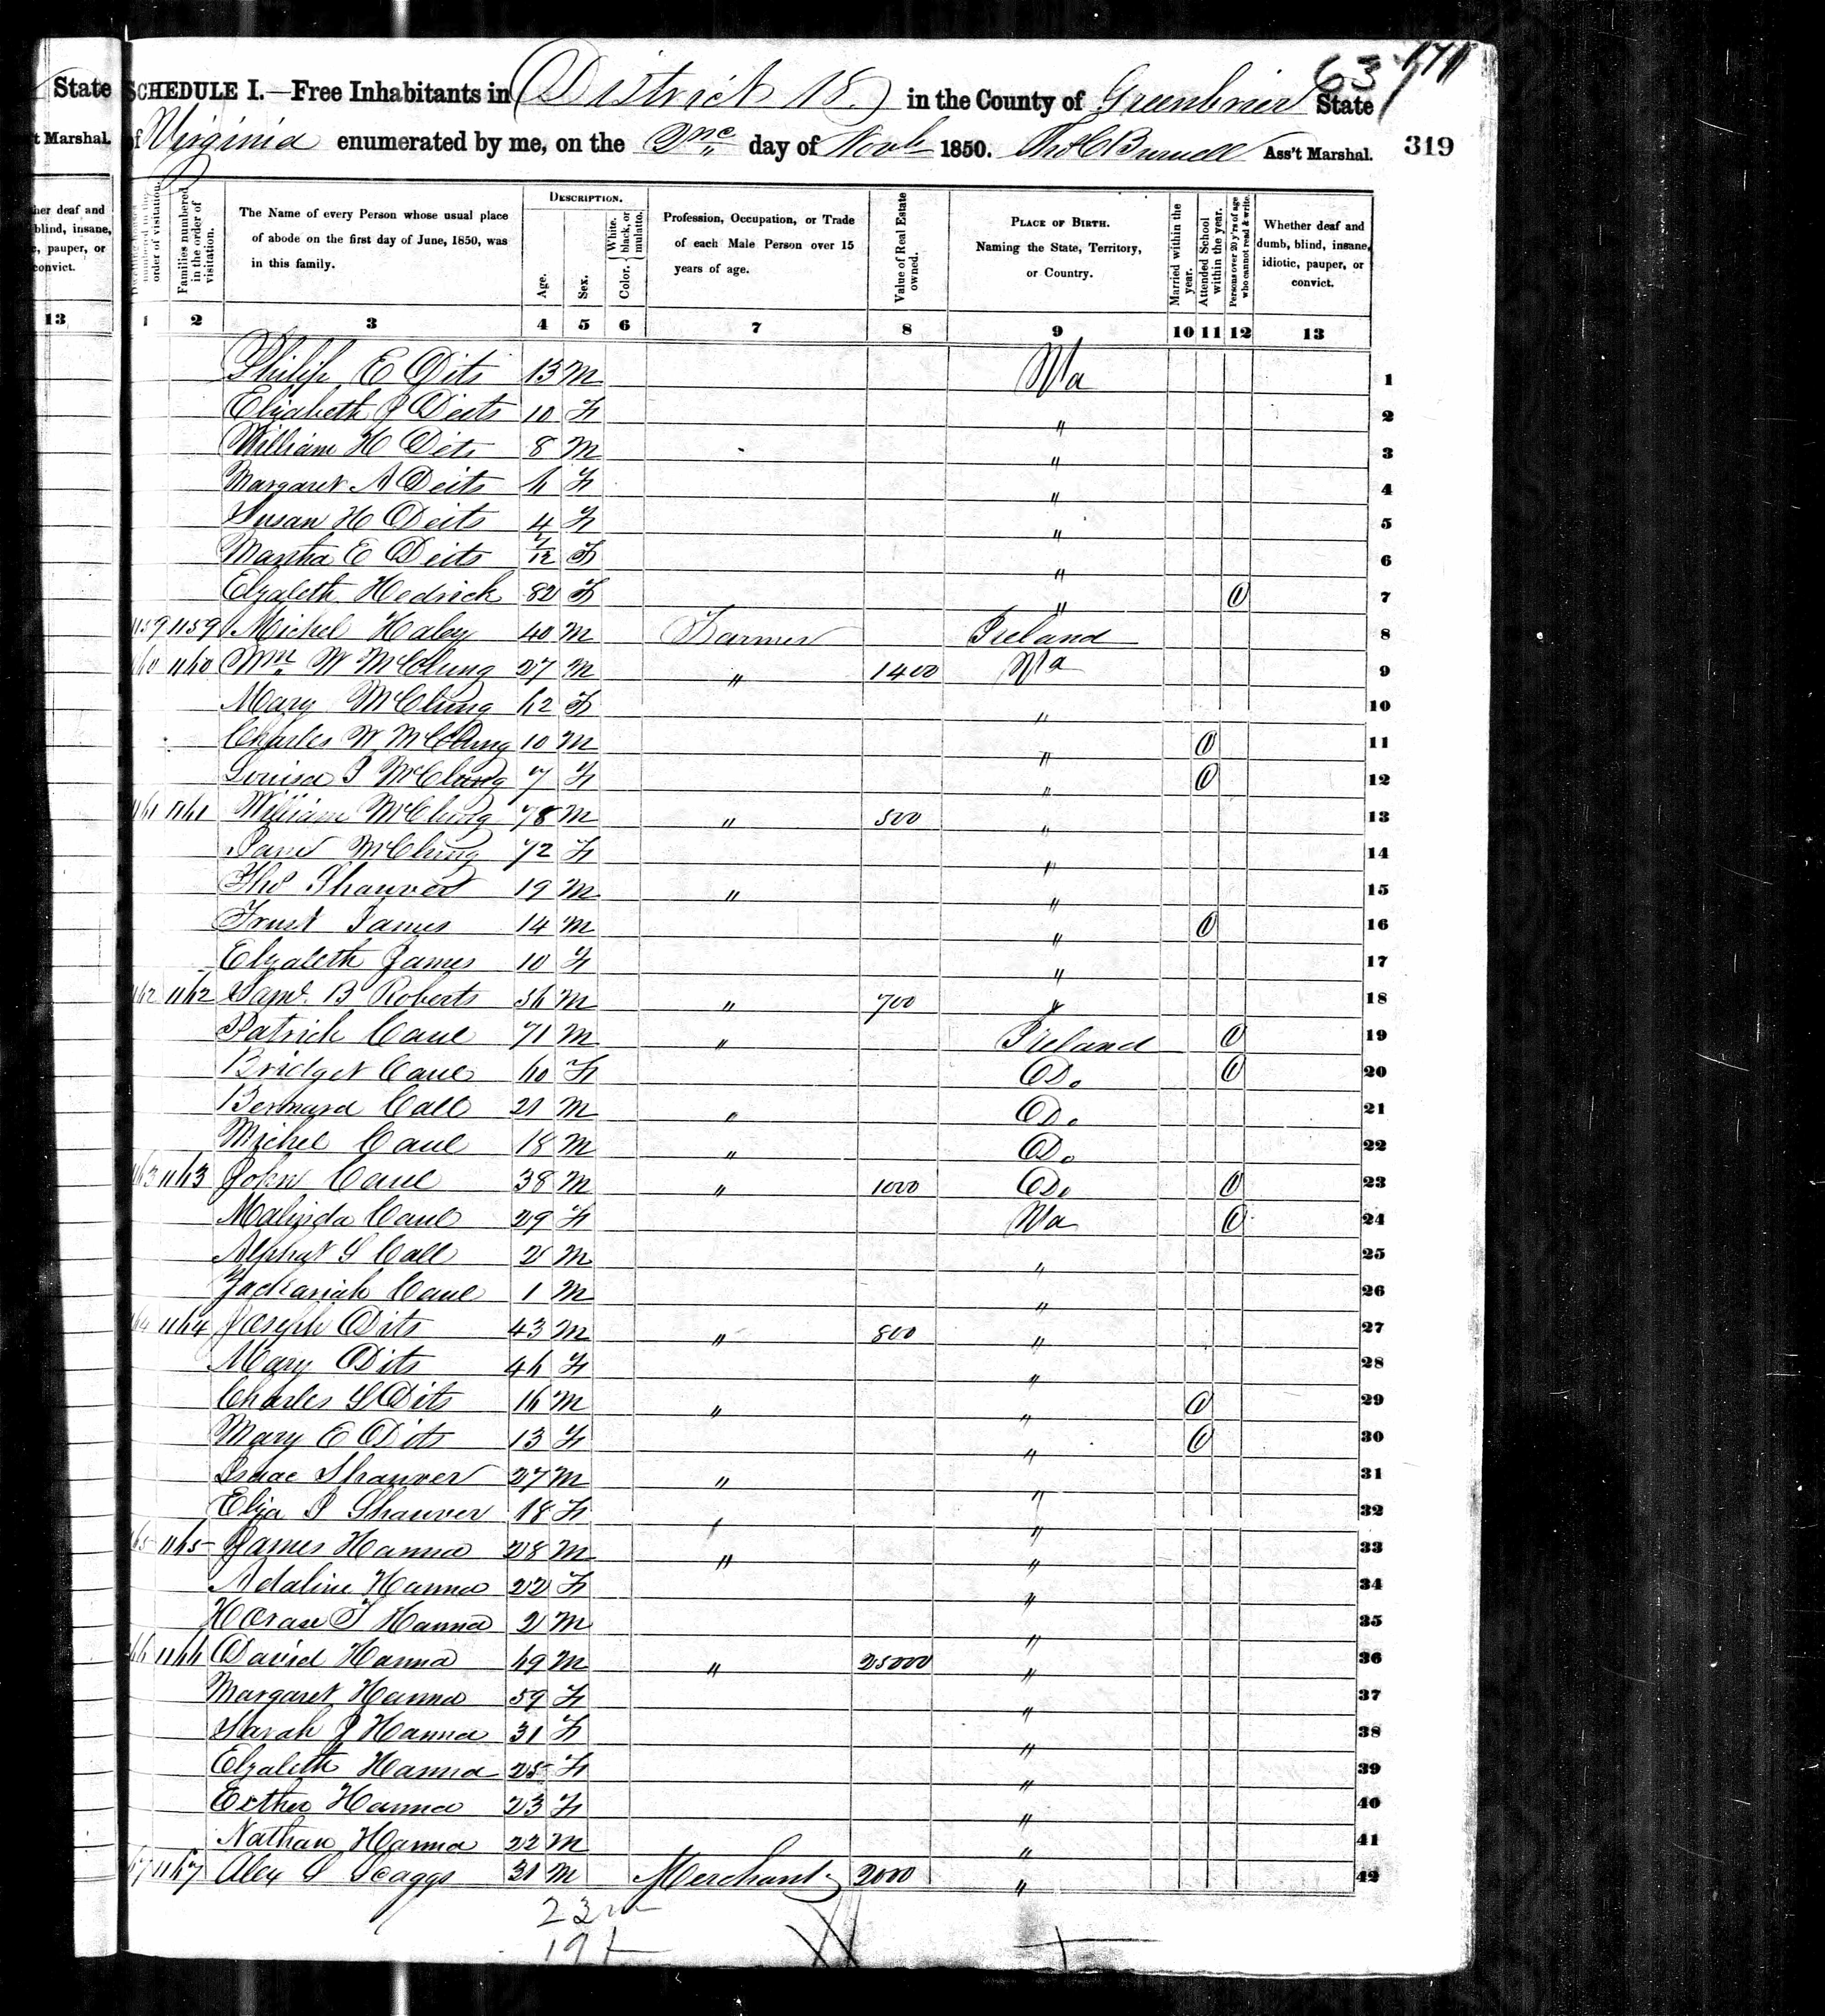 637 171
State SCHEDULE I.—Free Inhabitants in District 18 in the County of Greenbrier State
't Marshal. of Virginia enumerated by me, on the 2nd day of Novb 1850. Thos C Burwell Ass't Marshal. 319
her deaf and blind, insane, c, pauper, or convict.
order of visitation.
Families numbered in the order of visitation.
The Name of every Person whose usual place of abode on the first day of June, 1850, was in this family.
DESCRIPTION.
Age.
Sex.
Color. White, black, or mulatto.
Profession, Occupation, or Trade of each Male Person over 15 years of age.
Value of Real Estate owned.
PLACE OF BIRTH. Naming the State, Territory, or Country.
Married within the year.
Attended School within the year.
Persons over 20 y'rs of age who cannot read & write.
Whether deaf and dumb, blind, insane, idiotic, pauper, or convict.
13 1 2 3 4 5 6 7 8 9 10 11 12 13
Philip E Dits 13 M Va 1
Elizabeth J Deits 10 F " 2
William H Dits 8 M " 3
Margaret A Deits 6 F " 4
Susan H Deits 4 F " 5
Martha E Deits /12 F " 6
Elzabeth Hedrick 82 F " 1 7
1159 1159 Michel Haley 40 M Farmer Ireland 8
60 1160 Wm W McClung 27 M " 1400 Va 9
Mary McClung 62 F " 10
Charles W McClung 10 M " 1 11
Louisa J McClung 7 F " 1 12
1161 1161 William McClung 78 M " 500 " 13
Jane McClung 72 F " 14
Thos Shauver 19 M " " 15
Trust James 14 M " 1 16
Elzabeth James 10 F " 17
1162 1162 Saml. B Roberts 56 M " 700 " 18
Patrick Caul 71 M " Ireland 1 19
Bridget Caul 60 F Do 1 20
Bernard Call 21 M " Do 21
Michel Caul 18 M " Do 22
1163 1163 John Caul 38 M " 1000 Do 1 23
Malinda Caul 29 F Va 1 24
S Call 2 M " 25
Zachariah Caul 1 M " 26
64 1164 Joseph Dits 43 M " 800 " 27
Mary Dits 46 F " 28
Charles S Dits 16 M " " 1 29
Mary E Dits 13 F " 1 30
Isaac Shauver 27 M " " 31
Eliza J Shauver 18 F " 32
65 1165 James Hanna 28 M " " 33
Adaline Hanna 22 F " 34
T Hanna 2 M " 35
66 1166 David Hanna 69 M " 25000 " 36
Margaret Hanna 59 F " 37
Sarah J Hanna 31 F " 38
Elzabeth Hanna 25 F " 39
Esther Hanna 23 F " 40
Nathan Hanna 22 M " 41
67 1167 Alex Scaggs 31 M Merchant 2000 " 42
23 m
19 f